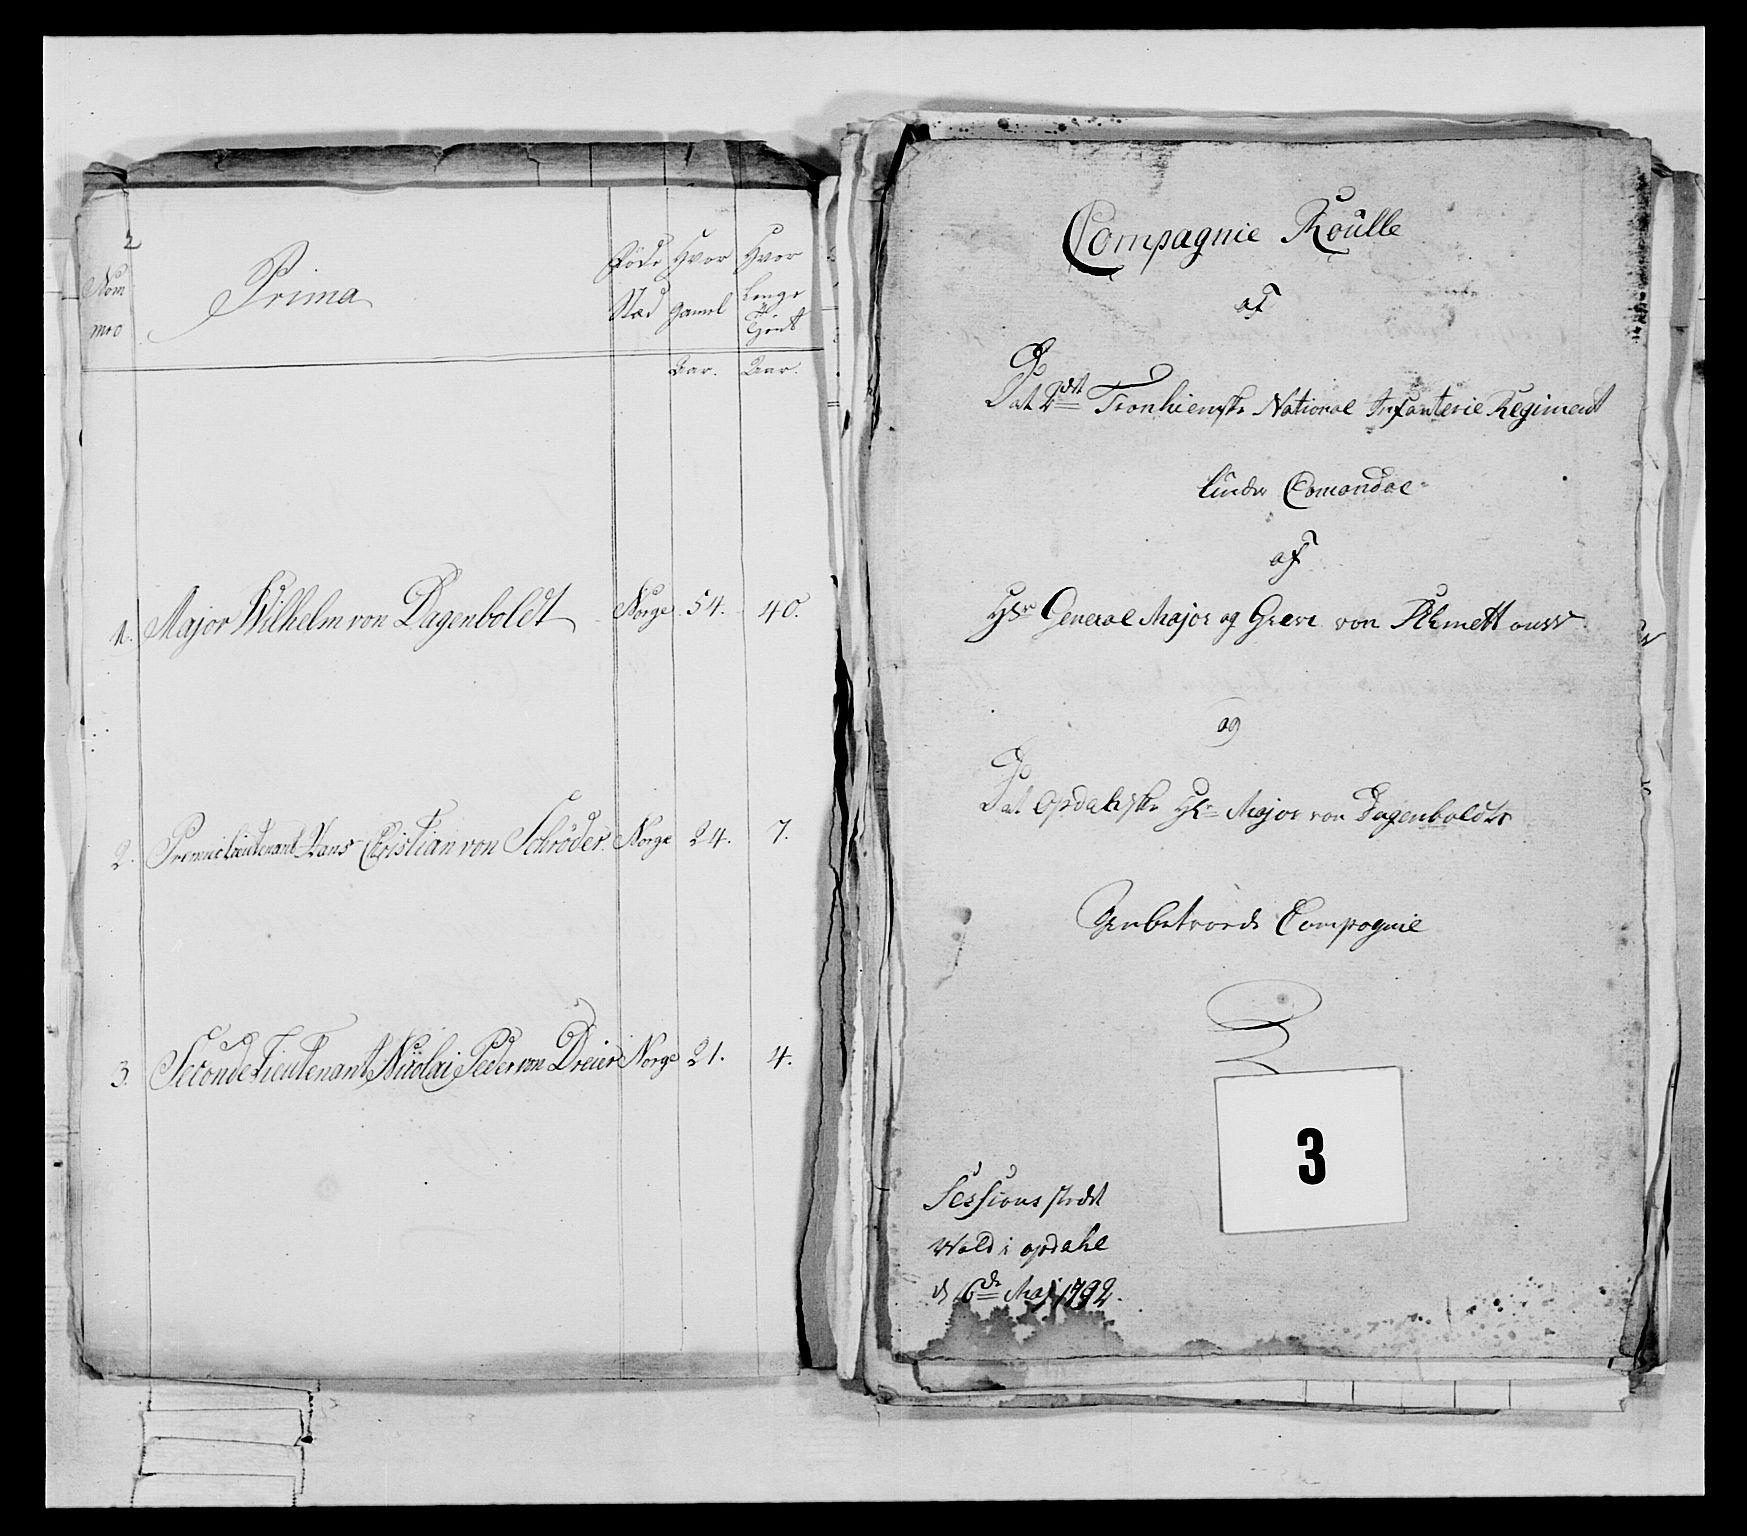 2
Nom
mro
Prima
Føde
Stad
Hvor
gamel
Hvor
Lenge
Tjent
Aar.
Aar.
1. Major Wilhelm von Dagenboldt Norge 54. 40.
2. Premierlieutenant Hans Christian von Schrøder Norge 24. 7.
3. Seconde Lieutenant Nicolai Peder von Dreier Norge 21. 4.
Compagnie Roulle
af
Dat 2det Tronhiemske National Infanterie Regiment
Under Comandoe
af
Hr General Major og Greve von Schmettouws
og
Dat Opdalske Hr Major von Dagenboldts
Anbetroede Compagnie
3
Sessions stedet
Wold i opdahl
d 6de Maj 1792.